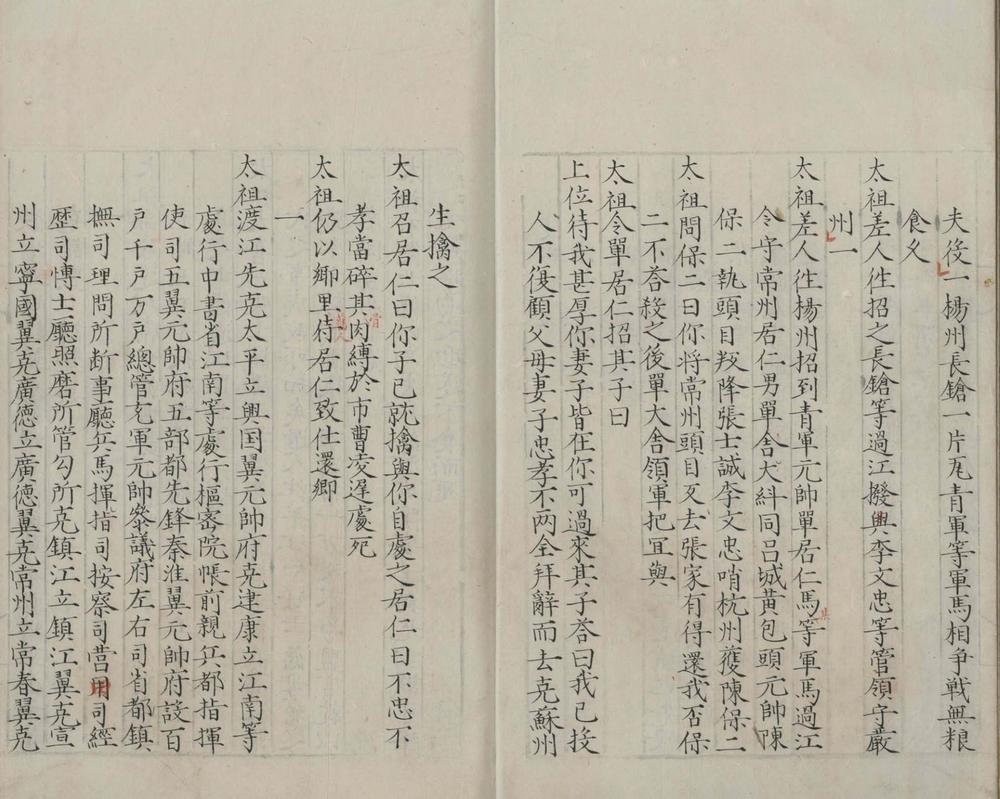 夫後一楊州長鎗一片瓦青軍等軍馬相爭戰無粮
食又
太祖差人往招之長鎗等過江撥與李文忠等管領守嚴
州一
太祖差人往楊州招到青軍元帥單居仁馬等軍馬過江
令守常州居仁男單舍大糾同呂城黃包頭元帥陳
保二執頭目叛降張士誠李文忠哨杭州獲陳保二
太祖問保二曰你將常州頭目歹去張家有得還我否保
二不荅殺之後單大舍領軍把冝興
太祖令單居仁招其子曰
上位待我甚厚你妻子皆在你可過來其子荅曰我已投
人不復顧父母妻子忠孝不两全拜辭而去克蘇州
生擒之
太祖召居仁曰你子已就擒與你自處之居仁曰不忠不
孝當碎其肉縛於市曹凌遲處死
太祖仍以鄉里待居仁致仕還鄉
一
太祖渡江先克太平立興国翼元帥府克建康立江南等
處行中書省江南等處行樞密院帳前親兵都指揮
使司五翼元帥府五部都先鋒秦淮翼元帥府設百
戶千戶万戶總管玄軍元帥叅議府左右司省都鎮
撫司理問所断事廳兵馬指揮司按察司營田司經
歷司博士廳照磨所管勾所克鎮江立鎮江翼克宣
州立寧國翼克廣德立廣德翼克常州立常春翼克